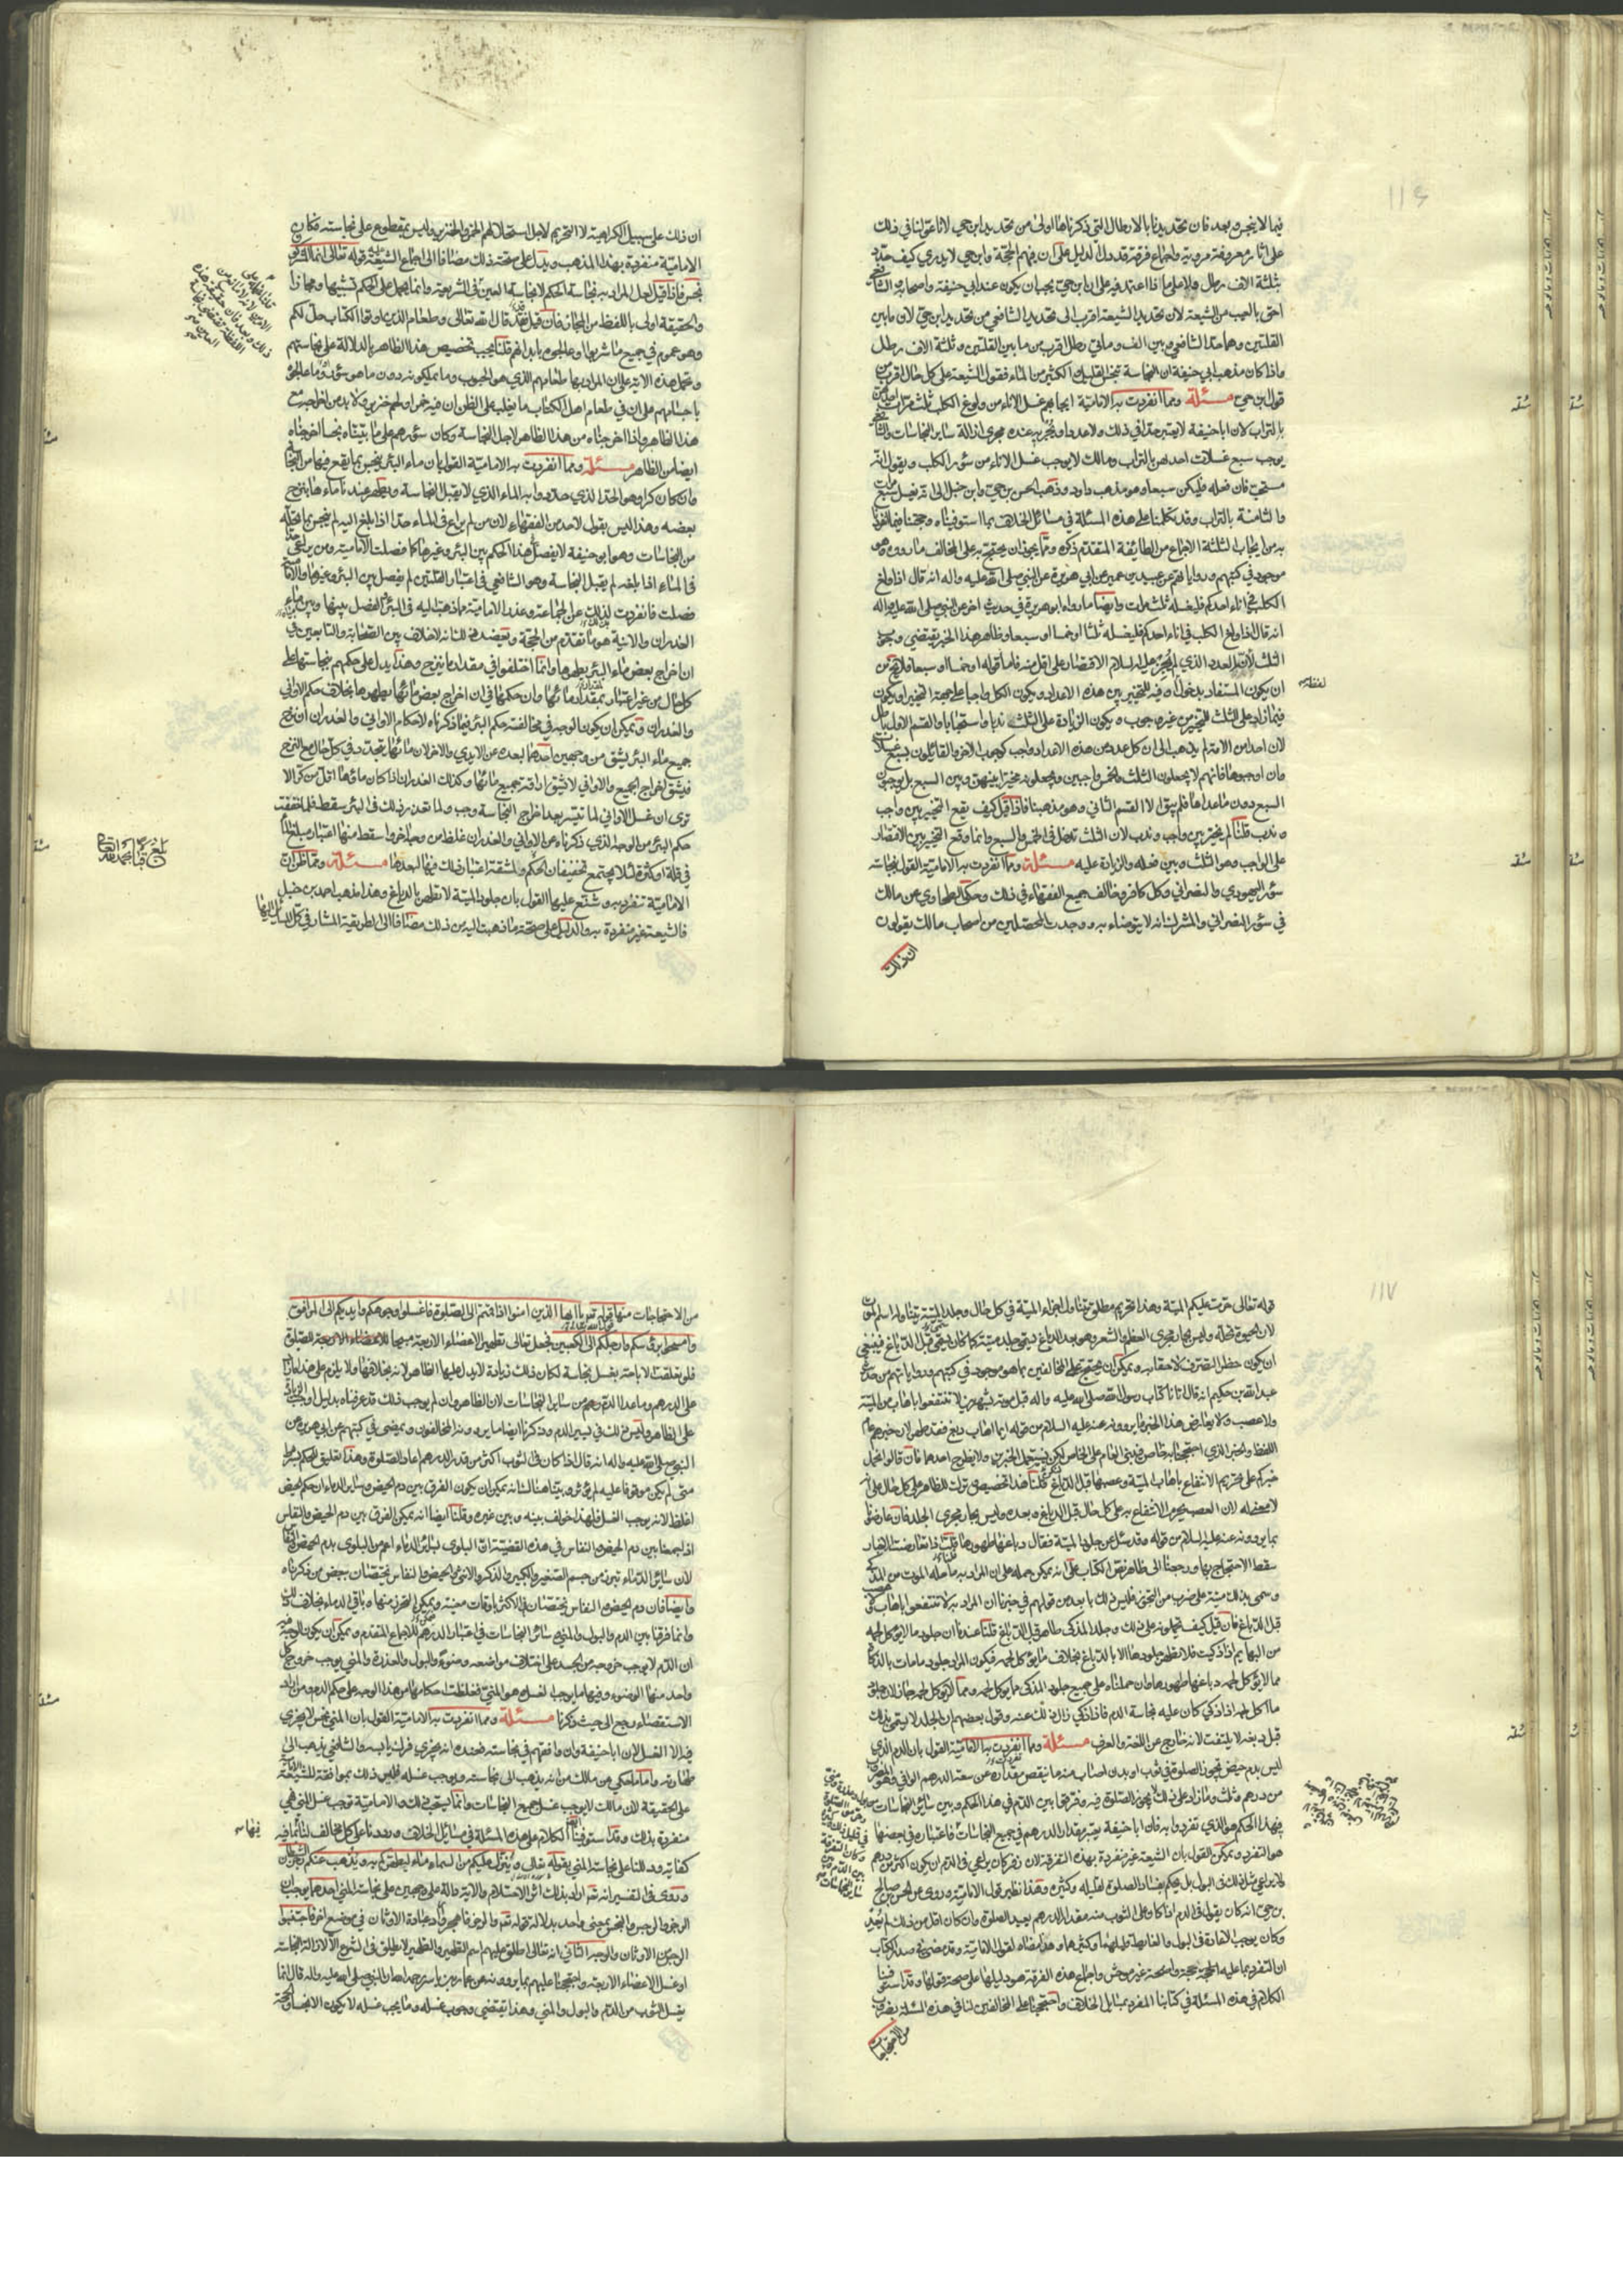 ١١٦
فيما لا ينجس وبعد فان تحديدنا بالارطال التي ذكرناها اولى من تحديد ابن حي لانا عوّلنا في ذلك
على آثار معروفة مروية واجماع فرقة قد دلّ الدليل على ان فيهم الحجة وابن حي لا يدري كيف حدّد
بثلثة الاف رطل وعلى ماذا اعتمد فيه على ان ابن حي يجب ان يكون عند ابي حنيفة واصحابه والشافعي
احق بالعيب من الشيعة لان تحديد الشيعة اقرب الى تحديد الشافعي من تحديد ابن حي لان ما بين
القلتين وهما حدّ الشافعي وبين الف ومأتي رطل اقرب من ما بين القلتين وثلثة الاف رطل
واذا كان مذهب ابي حنيفة ان النجاسة تنجس القليل والكثير من الماء فقول الشيعة على كل حال اقرب من
قول ابن حي مسئلة ومما انفردت به الامامية ايجابهم غسل الاناء من ولوغ الكلب ثلث مرات اوليهن
بالتراب لان ابا حنيفة لا يعتبر حدّا في ذلك ولا عددا ويجريه عنده مجرى ازالة ساير النجاسات والشافعي
يوجب سبع غسلات احدهن بالتراب ومالك لا يوجب غسل الاناء من سؤر الكلب ويقول انه
مستحب فان فعله فليكن سبعا وهو مذهب داود وذهب الحسن بن حي وابن حنبل الى انه يغسل سبع مرات
والثامنة بالتراب وقد تكلمنا على هذه المسئلة في مسائل الخلاف بما استوفيناه وحجتنا فيما انفردنا
به من ايجاب الثلثة الاجماع من الطايفة المتقدم ذكره ومما يجوز ان يحتج به على المخالف ما رووه وهو
موجود في كتبهم ورواياتهم عن عبيد بن عمير عن ابي هريرة عن النبي صلى الله عليه واله انه قال اذا ولغ
الكلب في اناء احدكم فليغسله ثلث مرات وايضا ما رواه ابو هريرة في حديث اخر عن النبي صلى الله عليه واله
انه قال اذا ولغ الكلب في اناء احدكم فليغسله ثلثا او خمسا او سبعا وظاهر هذا الخبر يقتضي وجوب
الثلث لانه العدد الذي لم يجز عليه السلام الاقتصار على اقل منه فاما قوله او خمسا او سبعا فلا يخلو من
ان يكون المستفاد بدخول او فيه للتخيير بين هذه الاعداد ويكون الكل واجبا على جهة التخيير او يكون
فيما زاد على الثلث للتخيير من غير وجوب ويكون الزيادة على الثلث ندبا واستحبابا والقسم الاول باطل
لان احدا من الامة لم يذهب الى ان كل عدد من هذه الاعداد واجب كوجوب الاخر والقائلون بسبع غسلات
وان اوجبوها فانهم لا يجعلون الثلث والخمس واجبين ويجعلونه مخيرا بينهن وبين السبع بل يوجبون
السبع دون ما عداها فلم يبق الا القسم الثاني وهو مذهبنا فاذا قيل كيف يقع التخيير بين واجب
وندب قلنا لم يخير بين واجب وندب لان الثلث تدخل في الخمس والسبع وانما وقع التخيير بين الاقتصار
على الواجب وهو الثلث وبين فعله والزيادة عليه مسئلة ومما انفردت به الامامية القول بنجاسة
سؤر اليهودي والنصراني وكل كافر وخالف جميع الفقهاء في ذلك وحكى الطحاوي عن مالك
في سؤر النصراني والمشرك انه لا يتوضاء به ووجدت المحصلين من اصحاب مالك يقولون
ان ذلك
ان ذلك على سبيل الكراهية لا التحريم لاجل استحلالهم الخمر والخنزير وليس بمقطوع على نجاسته فكان
الامامية منفردة بهذا المذهب ويدل على صحة ذلك مضافا الى اجماع الشيعة قوله تعالى انما المشركون
نجس فاذا قيل لعل المراد به نجاسة الحكم لا نجاسة العين في الشريعة وانما يحمل على الحكم تشبيها ومجازا
والحقيقة اولى باللفظ من المجاز فان قيل فقد قال الله تعالى وطعام الذين اوتوا الكتاب حل لكم
وهو عموم في جميع ما شربوا وعالجوه بايديهم قلنا يجب تخصيص هذا الظاهر بالدلالة على نجاستهم
ونحمل هذه الاية على ان المراد بها طعامهم الذي هو الحبوب وما يملكونه دون ما هو سؤر وما عالجوه
باجسامهم على ان في طعام اهل الكتاب ما يغلب على الظن ان فيه خمرا ولحم خنزير ولا بد من اخراجه مع
هذا الظاهر واذا اخرجناه من هذا الظاهر لاجل النجاسة وكان سؤرهم على ما بيناه نجسا اخرجناه
ايضا من الظاهر مسئلة ومما انفردت به الامامية القول بان ماء البئر ينجس بما يقع فيها من النجاسة
وان كان كرا وهو الحد الذي حددوا به الماء الذي لا يقبل النجاسة ويطهر عندنا ماءها بنزح
بعضه وهذا ليس بقول لاحد من الفقهاء لان من لم يراع في الماء حدا اذا بلغ اليه لم ينجس بما يحله
من النجاسات وهو ابو حنيفة لا يفصل هذا الحكم بين البئر وغيرها كما فصلت الامامية ومن يراعي حدا
في الماء اذا بلغه لم يقبل النجاسة وهو الشافعي في اعتبار القلتين لم يفصل بين البئر وغيرها والامامية
فصلت فانفردت لذلك عن الجماعة وعذر الامامية فيما ذهب اليه في البئر الفصل بينها وبين ماء
الغدران والانية هو ما تقدم من الحجة ويعضد ذلك انه لا خلاف بين الصحابة والتابعين في
ان اخراج بعض ماء البئر يطهرها وانما اختلفوا في مقدار ما ينزح وهذا يدل على حكمهم بنجاستها على
كل حال من غير اعتبار لمقدار مائها وان حكمها في ان اخراج بعض مائها يطهرها بخلاف حكم الاواني
والغدران ويمكن ان يكون الوجه في مخالفة حكم البئر فيما ذكرناه لاحكام الاواني والغدران ان نزح
جميع ماء البئر يشق من وجهين احدهما بعده عن الايدي والاخر لان مائها يتجدد في كل حال مع النزح
فيشق اخراج الجميع والاواني لا يشق اراقة جميع مائها وكذلك الغدران اذا كان ماؤها اقل من كر الا
ترى ان غسل الاواني لما تيسر بعد اخراج النجاسة وجب ولما تعذر ذلك في البئر سقط فلما خففت
حكم البئر من الوجه الذي ذكرناه عن الاواني والغدران غلظ من وجه اخر واسقط منها اعتبار مبلغ الماء
في قلة او كثرة لئلا يجتمع تخفيفان لحكم والمشقة اعتبار ذلك فيها لبعدها مسئلة ومما ظن ان
الامامية تنفرد به وشنع عليها القول بان جلود الميتة لا تطهر بالدباغ وهذا مذهب احمد بن حنبل
فالشيعة غير منفردة به والدليل على صحة ما ذهبت اليه من ذلك مضافا الى الطريقة المشار في كل المسائل اليها
١١٧
قوله تعالى حرمت عليكم الميتة وهذا تحريم مطلق يتناول اجزاء الميتة في كل حال وجلد الميتة يتناوله اسم الموت
لان الحيوة تحله وليس بجار مجرى العظم والشعر وهو بعد الدباغ يسمى جلد ميتة كما كان يسمى قبل الدباغ فينبغي
ان يكون حظر التصرف لاحقا به ويمكن ان يحتج على المخالفين بما هو موجود في كتبهم ورواياتهم من حديث
عبد الله بن حكيم انه قال اتانا كتاب رسول الله صلى الله عليه واله قبل موته بشهر بن لا تنتفعوا باهاب من الميتة
ولا عصب ولا يعارض هذا الخبر ما يروونه عنه عليه السلام من قوله ايما اهاب دبغ فقد طهر لان خبرهم عام
اللفظ والخبر الذي احتججنا به خاص فنبني العام على الخاص لكي نستعمل الخبرين ولا نطرح احدهما فان قالوا نحمل
خبركم على تحريم الانتفاع باهاب الميتة وعصبها قبل الدباغ قلنا هذا تخصيص وترك للظاهر على كل حال على انه
لا معنى له لان العصب يحرم الانتفاع به على كل حال قبل الدباغ وبعده وليس بجار مجرى الجلد فان عارضوا
بما يروونه عنه عليه السلام من قوله وقد سئل عن جلود الميتة فقال دباغها طهورها قلنا اذا تعارضت الاخبار
سقط الاحتجاج بها ورجعنا الى ظاهر نص الكتاب على انه يمكن حمله على ان المراد به ما حله الموت من المذكى
وسمي بذلك ميتة على ضرب من التجوز فليس ذلك بابعد من قولهم في خبرنا ان المراد به لا تنتفعوا باهاب ولا عصب
قبل الدباغ فان قيل كيف تحملونه على ذلك وجلد المذكى طاهر قبل الدباغ قلنا عندنا ان جلود ما لا يؤكل لحمه
من البهايم اذا ذكيت فلا تطهر جلودها الا بالدباغ بخلاف ما يؤكل لحمه فيكون المراد جلود ما مات بالذكاة
مما لا يؤكل لحمه دباغها طهورها وان حملناه على جميع جلود المذكى مما يؤكل لحمه ومما لا يؤكل لحمه جاز لان جلود
ما اكل لحمه اذا ذكي كان عليه نجاسة الدم فاذا ذكي زال ذلك عنه وقول بعضهم ان الجلد لا يسمى بذلك
قبل دبغه لا يلتفت لانه خارج عن اللغة والعرف مسئلة ومما انفردت به الامامية القول بان الدم الذي
ليس بدم حيض تجوز الصلوة في ثوب او بدن اصاب منه ما ينقص مقداره عن سعة الدرهم الوافي وهو المضروب
من درهم وثلث وما زاد على ذلك لا تجوز الصلوة فيه وفرقوا بين الدم في هذا الحكم وبين سائر النجاسات
فهذا الحكم هو الذي تفردوا به فان ابا حنيفة يعتبر مقدار الدرهم في جميع النجاسات فاعتباره في بعضها
هو التفرد ويمكن القول بان الشيعة غير منفردة بهذه التفرقة لان زفر كان يراعي في الدم ان يكون اكثر من درهم
ولا يراعي مثل ذلك في البول بل يحكم بفساد الصلوة لقليله وكثيره وهذا نظير قول الامامية وروي عن الحسن بن صالح
بن حي انه كان يقول في الدم اذا كان على الثوب منه مقدار الدرهم يعيد الصلوة وان كان اقل من ذلك لم يعد
وكان يوجب الاعادة في البول والغايط قليلهما وكثيرهما وهذا مضاه لقول الامامية وقد مضى في صدر الكتاب
ان التفرد بما عليه الحجة حجة واضحة غير موحش واجماع هذه الفرقة هو دليلها على صحة قولها وقد استوفينا
الكلام في هذه المسئلة في كتابنا المفرد بمسايل الخلاف واحتججنا على المخالفين لنا في هذه المسئلة بضروب
من الاحتجاجات
من الاحتجاجات منها قوله تعالى يا ايها الذين امنوا اذا قمتم الى الصلوة فاغسلوا وجوهكم وايديكم الى المرافق
وامسحوا برؤسكم وارجلكم الى الكعبين فجعل تعالى تطهير الاعضاء الاربعة مبيحا للصلوة
فلو تعلقت الاباحة بغسل نجاسة لكان ذلك زيادة لا يدل عليها الظاهر لانه بخلافها ولا يلزم على هذا ما زاد
على الدرهم وما عدا الدم من ساير النجاسات لان الظاهر وان لم يوجب ذلك قد عرفناه بدليل اوجب الزيادة
على الظاهر وليس ذلك في يسير الدم وذكرنا ايضا ما يروونه المخالفون ويمضي في كتبهم عن ابي هريرة عن
النبي صلى الله عليه واله انه قال اذا كان في الثوب اكثر من قدر الدرهم اعاد الصلوة وهذا تعليق الحكم بشرط
متى لم يكن موقوفا عليه لم يؤثر وبينا هناك انه يمكن ان يكون الفرق بين دم الحيض وسائر الدماء ان حكم الحيض
اغلظ لانه يوجب الغسل فلهذا خولف بينه وبين غيره وقلنا ايضا انه يمكن الفرق بين دم الحيض والنفاس
اذا جمعنا بين دم الحيض والنفاس في هذه القضية ان البلوى بسائر الدماء اعم من البلوى بدم الحيض والنفاس
لان سائر الدماء تبرز من جسم الصغير والكبير والذكر والانثى والحيض والنفاس يختصان ببعض من ذكرناه
وايضا فان دم الحيض والنفاس يختصان في الاكثر باوقات معينة ويمكن التحرز منهما وباقي الدماء بخلاف ذلك
وانما فرقنا بين الدم والبول والمني وسائر النجاسات في اعتبار الدرهم للاجماع المتقدم ويمكن ان يكون الوجه فيه
ان الدم لا يوجب خروجه من الجسد على اختلاف مواضعه وضوءا والبول والعذرة والمني يوجب خروج كل
واحد منها الوضوء وفيها ما يوجب الغسل وهو المني فغلظت احكامها من هذا الوجه على حكم الدم ومن اراد
الاستقصاء رجع الى حيث ذكرنا مسئلة ومما انفردت به الامامية القول بان المني نجس لا يجزي
فيه الا الغسل لان ابا حنيفة وان وافقهم في نجاسته فعنده انه يجزي فرك يابسه والشافعي يذهب الى
طهارته واما ما حكي عن مالك من انه يذهب الى نجاسته ويوجب غسله فليس ذلك بموافقة للشيعة الامامية
على الحقيقة لان مالك لا يوجب غسل جميع النجاسات وانما يستحب ذلك والامامية توجب غسل المني فهي
منفردة بذلك وقد استوفينا الكلام على هذه المسئلة في مسايل الخلاف ورددنا على كل مخالف لنا بما فيه
كفاية ودللنا على نجاسة المني بقوله تعالى وينزل عليكم من السماء ماء ليطهركم به ويذهب عنكم رجز الشيطان
وروي في التفسير انه تعالى اراد بذلك اثر الاحتلام والاية دالة على وجهين على نجاسة المني احدهما يوجب ان
الرجز والرجس والنجس بمعنى واحد بدلالة قوله تعالى والرجز فاهجر واراد عبادة الاوثان في موضع اخر فاجتنبوا
الرجس من الاوثان والوجه الثاني انه تعالى اطلق عليه اسم التطهير والتطهير لا يطلق في الشرع الا لازالة النجاسة
او غسل الاعضاء الاربعة واحتججنا عليهم بما يروونه عن عمار بن ياسر رحمه الله ان النبي صلى الله عليه واله قال انما
يغسل الثوب من الدم والبول والمني وهذا يقتضي وجوب غسله وما يجب غسله لا يكون الا نجسا